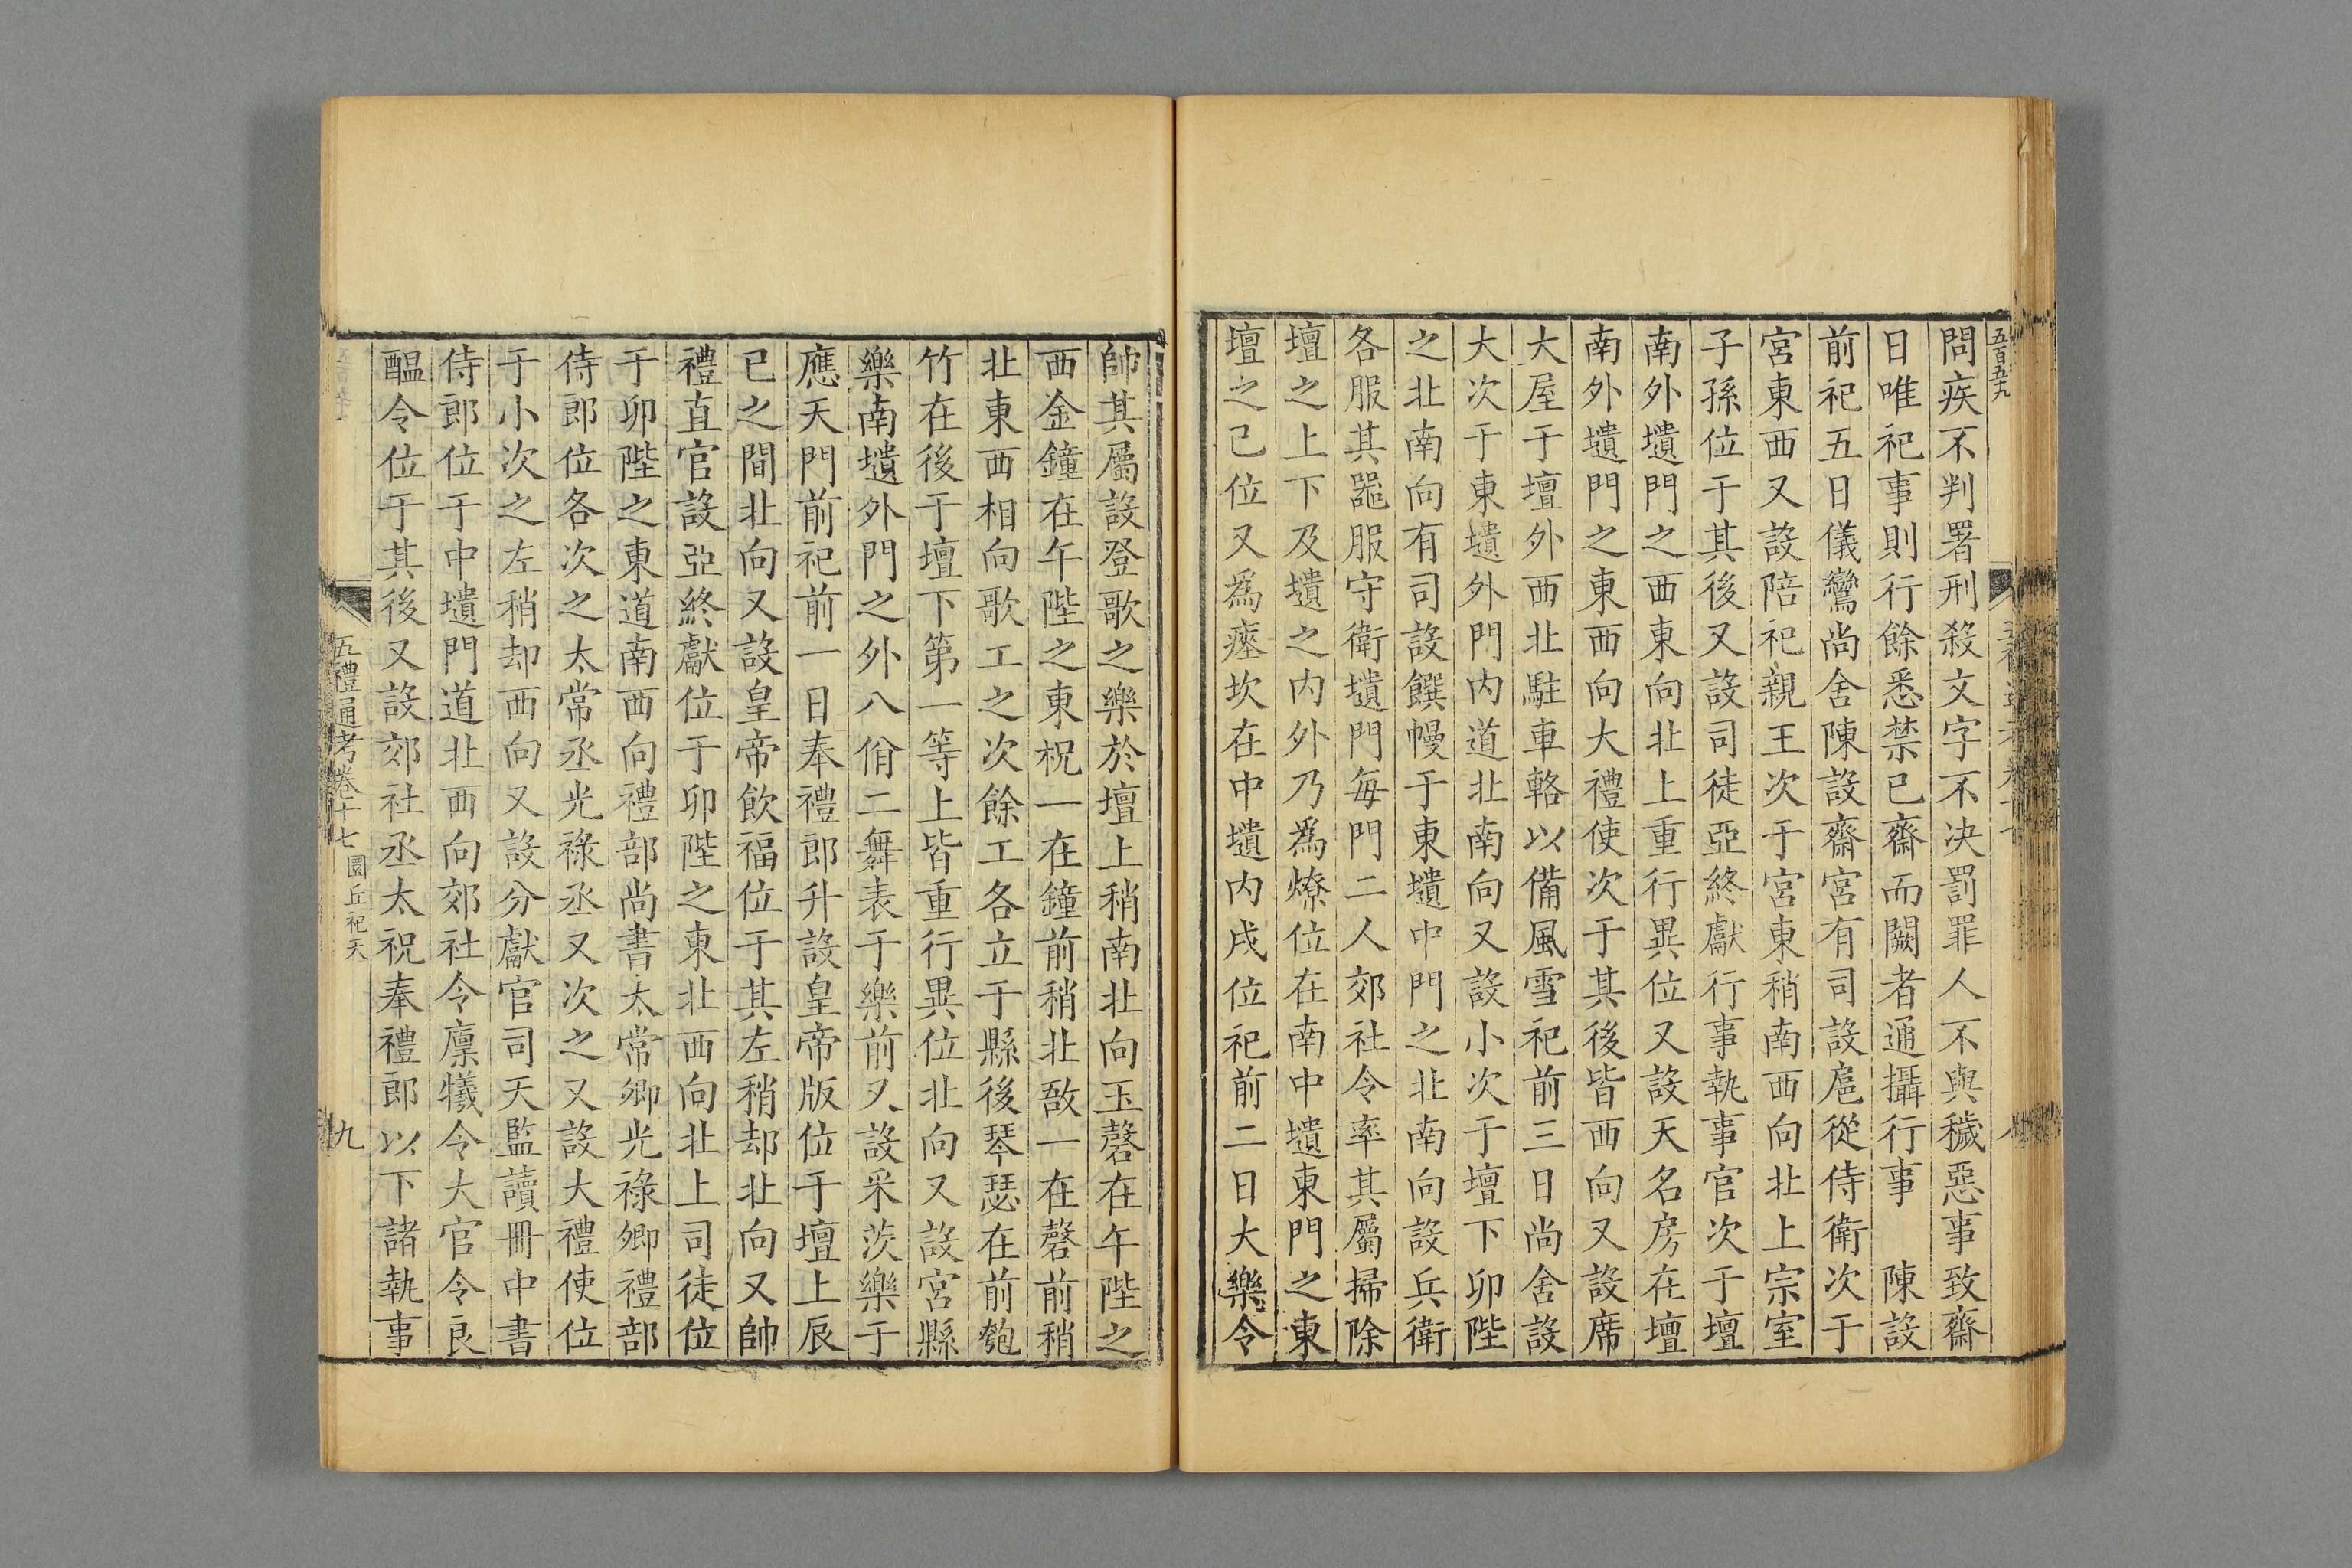 五百五九
問疾不判署刑殺文字不決罰罪人不與穢惡事致齋
日唯祀事則行餘悉禁已齋而闕者通攝行事　陳設
前祀五日儀鸞尚舍陳設齋宮有司設扈從侍衛次于
宮東西又設陪祀親王次于宮東稍南西向北上宗室
子孫位于其後又設司徒亞終獻行事執事官次于壇
南外壝門之西東向北上重行異位又設天名房在壇
南外壝門之東西向大禮使次于其後皆西向又設席
大屋于壇外西北駐車輅以備風雪祀前三日尚舍設
大次于東壝外門內道北南向又設小次于壇下卯陛
之北南向有司設饌幔于東壝中門之北南向設兵衛
各服其器服守衛壝門每門二人郊社令率其屬掃除
壇之上下及壝之內外乃為燎位在南中壝東門之東
壇之已位又為瘞坎在中壝內戌位祀前二日大樂令
帥其屬設登歌之樂於壇上稍南北向玉磬在午陛之
西金鐘在午陛之東柷一在鐘前稍北敔一在磬前稍
北東西相向歌工之次餘工各立于縣後琴瑟在前匏
竹在後于壇下第一等上皆重行異位北向又設宮縣
樂南壝外門之外八佾二舞表于樂前又設采茨樂于
應天門前祀前一日奉禮郎升設皇帝版位于壇上辰
巳之間北向又設皇帝飲福位于其左稍却北向又帥
禮直官設亞終獻位于卯陛之東北西向北上司徒位
于卯陛之東道南西向禮部尚書太常卿光祿卿禮部
侍郎位各次之太常丞光祿丞又次之又設大禮使位
于小次之左稍却西向又設分獻官司天監讀冊中書
侍郎位于中壝門道北西向郊社令廩犧令大官令良
醞令位于其後又設郊社丞太祝奉禮郎以下諸執事
五禮通考卷十七　圜丘祀天　九